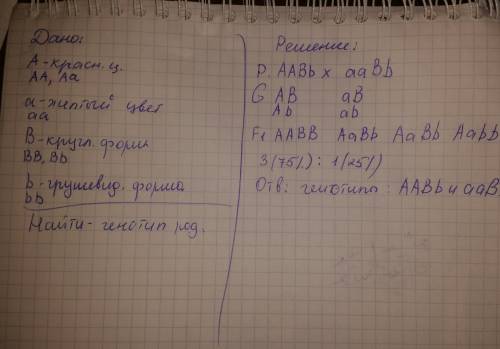 Дано:
А-красн. ц.
АА, Аа
а-желтый цвет
аа
В-кругл. форм
ВВ, Вb
b-грушевид. форма
bb
Найти-генотип род.
Решение:
Р. ААВb х ааВb
G АВ аВ
Аb аb
F1 ААВВ АаВb АаВb Ааbb
3(75%):1(25%)
Отв: генотипы: ААВb и ааВ